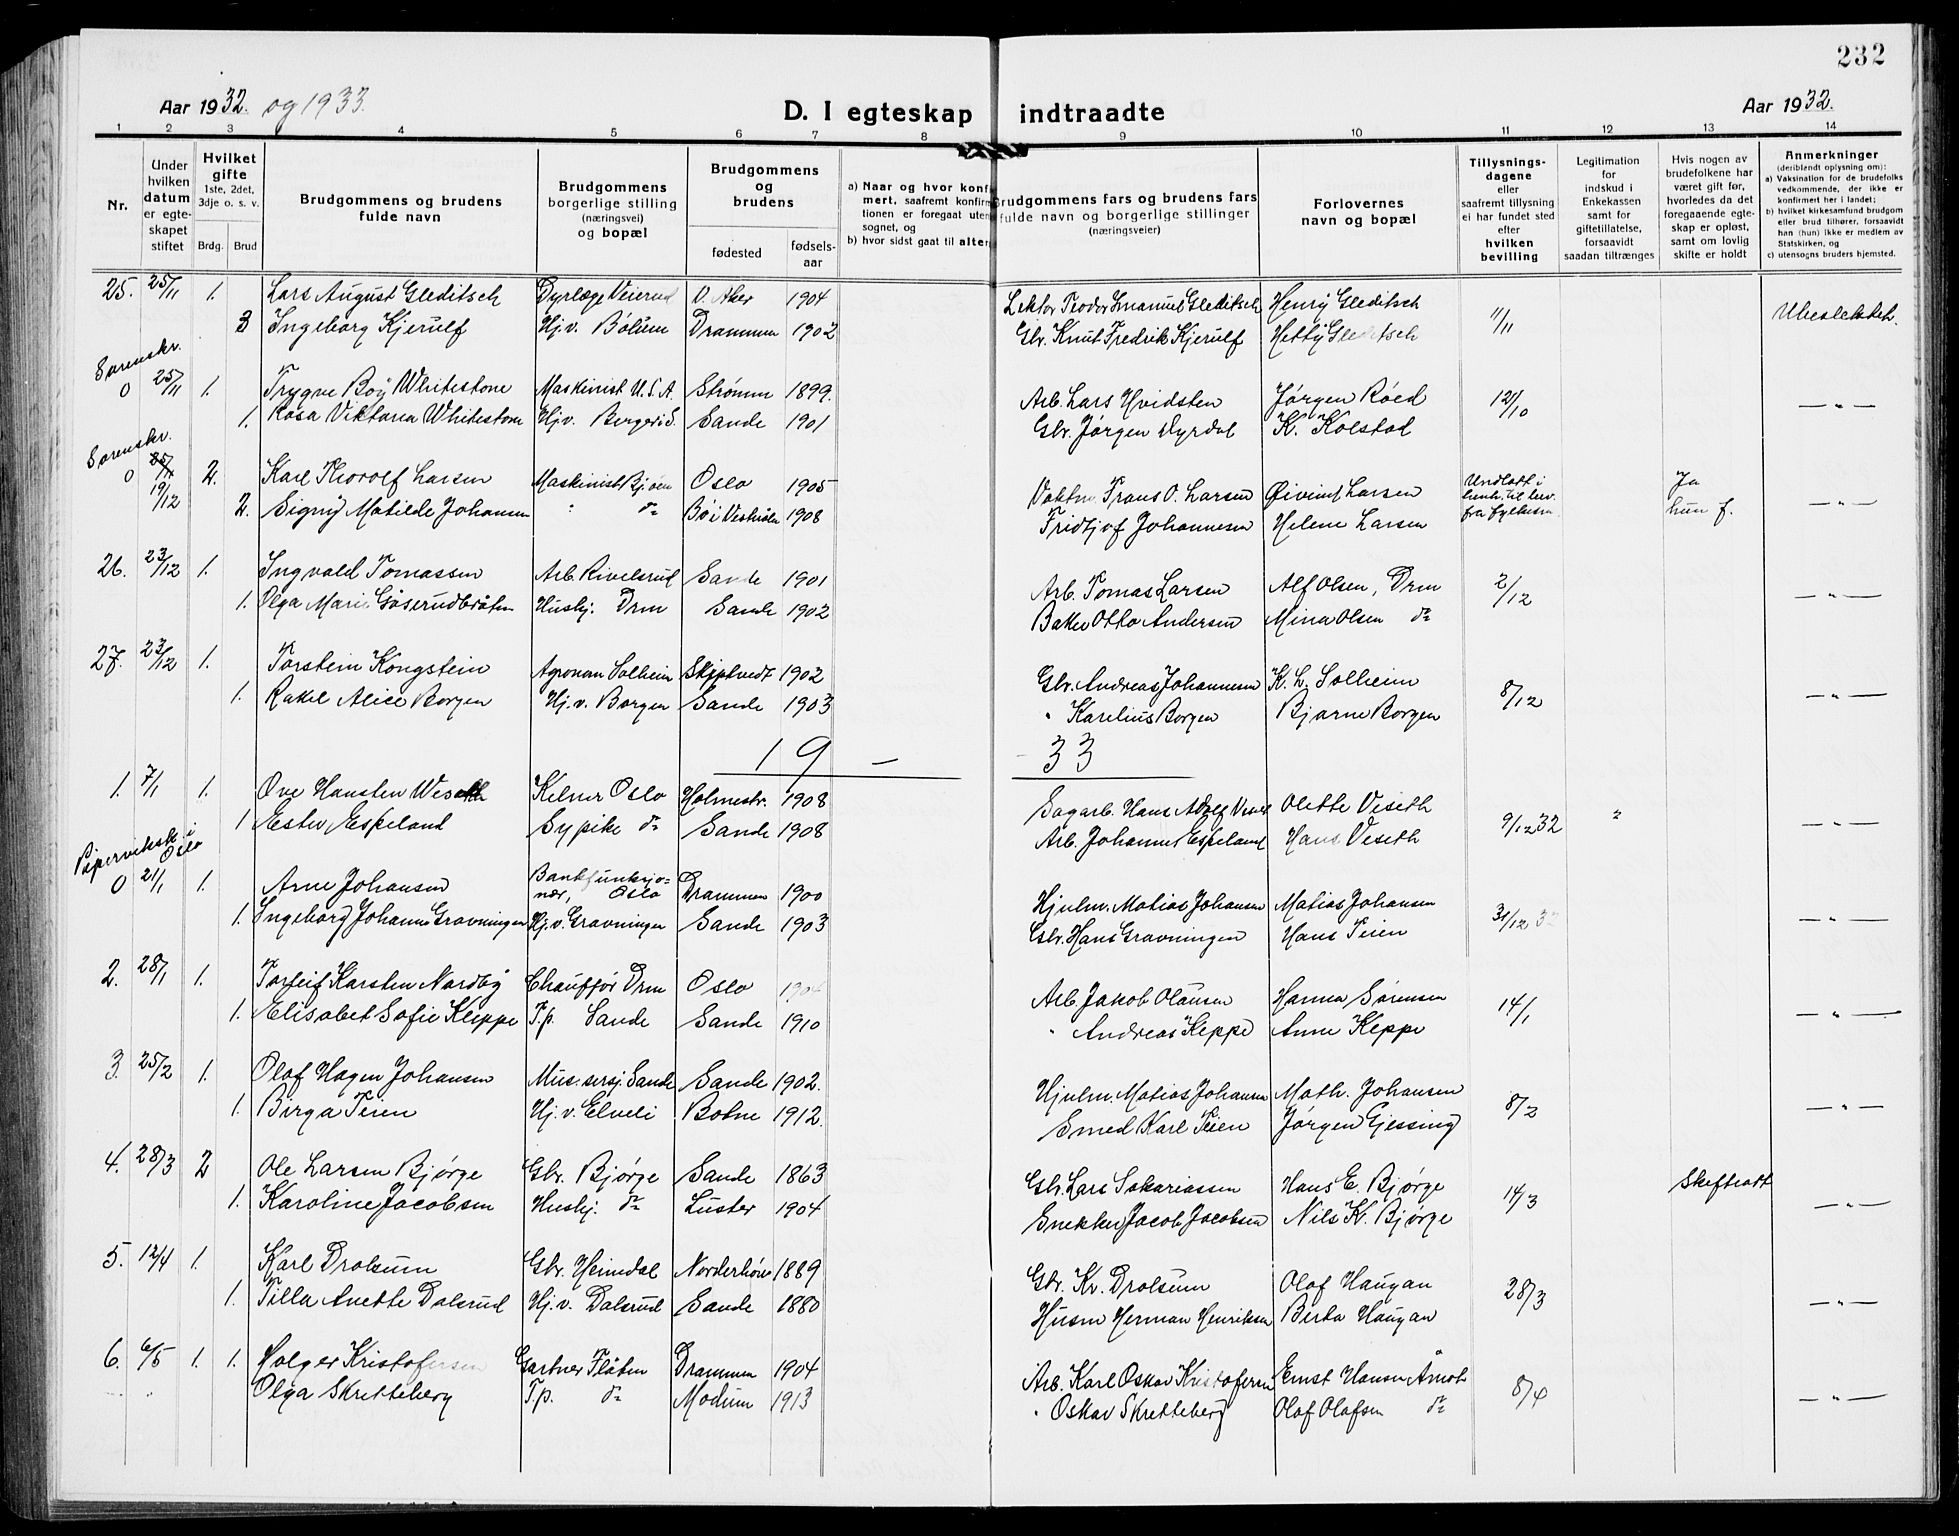 232
Aar 1932. og 1933.
D. I egteskap indtraadte
Aar 1932.
1 2 3 4 5 6 7 8 9 10 11 12 13 14
Nr.
Under hvilken datum er egteskapet stiftet
Hvilket gifte 1ste, 2det, 3dje o. s. v.
Brdg. Brud
Brudgommens og brudens fulde navn
Brudgommens borgerlige stilling (næringsvei) og bopæl
Brudgommens og brudens
fødested fødsels-aar
a) Naar og hvor konf
mert, saafremt konfirm
tionen er foregaat uten
sognet, og
b) hvor sidst gaat til alter
Brudgommens fars og brudens fars fulde navn og borgerlige stillinger (næringsveier)
Forlovernes navn og bopæl
Tillysnings-dagene eller saafremt tillysning ei har fundet sted efter hvilken bevilling
Legitimation for indskud i Enkekassen samt for giftetillatelse, forsaavidt saadan tiltrænges
Hvis nogen av brudefolkene har været gift før, hvorledes da det foregaaende egteskap er opløst, samt om lovlig skifte er holdt
Anmerkninger (deriblendt oplysning om):
a) Vaksination for de brudefolks vedkommende, der ikke er konfirmert her i landet;
b) hvilket kirkesamfund brudgom eller brud tilhører, forsaavidt han (hun) ikke er medlem av Statskirken, og
c) utensogns bruders hjemsted.
25. 25/11 1. Lars August Gleditsch Dyrlæge Veierud V. Aker 1904 Lektor Teodor Emanuel Gleditsch Henry Gleditsch 11/11 Ubeslektet.
3 Ingeborg Kjerulf Hj.v. Bolum Drammen 1902 Gbr. Knut Fredrik Kjerulf Hetty Gleditsch
Sorenskr.
0 25/11 1. Trygve Boy Whitestone Maskinist U.S.A. Strømm 1899. Arb. Lars Hvidsten Jørgen Røed 12/10 — " —
1. Rosa Viktoria Whitestone Hj.v. Berger i S. Sande 1901 Gbr. Jørgen Dyrdal K. Kolstad
Sorenskr.
0 19/12 2. Karl Thorolf Larsen Maskinist Oslo 1905 Vaktm. Frans O. Larsen Øivind Larsen Undlatt i Ja — " —
2. Signy Matilde Johansen " do Bø i Vesterålen 1908 Fridtjof Johannesen Helene Larsen fra fylkesm. hun f.
26. 23/12 1. Ingvald Tomassen Arb. Rivelsrud Sande 1901 Arb. Tomas Larsen Alf Olsen, Drm 2/12 — " —
1. Olga Marie Gåserudbråten Hushj. Drm Sande 1902 Baker Otto Andersen Mina Olsen do
27. 23/12 1. Torstein Kongstein Agronom Solheim Skiptvedt 1902 Gbr. Andreas Johannesen K. L. Solheim 8/12 — " —
1. Rakel Alice Borgen Hj.v. Borgen Sande 1903 " Karelius Borgen Bjarne Borgen
19 — 33
1. 7/1 1. Ove Hansten Weseth Kelner Oslo Holmestr. 1908 Sagarb. Hans Adolf Viseth Olette Viseth 9/12 32 " — " —
1 Ester Espeland Sypike do Sande 1908 Arb. Johannes Espeland Hans Veseth
Piperviksk. i Oslo
0 21/1 1. Arne Johansen Bankfunksjonær, Oslo Drammen 1900 Hjulm. Matias Johansen Matias Johansen 31/12 32 — " —
1. Ingeborg Johanne Gravningen Hj.v. Gravningen Sande 1903 Gbr. Hans Gravningen Hans Teien
2. 28/1 1. Torleif Karsten Nordby Chauffør Drm Oslo 1904 Arb. Jakob Olausen Hanna Sørensen 14/1 — " —
1. Elisabet Sofie Kleppe T.p. Sande Sande 1910 " Andreas Kleppe Anne Kleppe
3. 25/2 1. Olaf Hagen Johansen Mus. sersj. Sande Sande 1902. Hjulm. Matias Johansen Math. Johansen 8/2 — " —
1. Birga Teien Hj.v. Elveli Botne 1912. Smed Karl Teien Jørgen Gjessing
4. 28/3 2 Ole Larsen Bjørge Gbr. Bjørge Sande 1863 Gbr. Lars Sakariassen Hans E. Bjørge 14/3 Skefteatt — " —
1. Karoline Jacobsen Hushj. do Luster 1904 Snekker Jacob Jacobsen Nils K. Bjørge
5. 12/4 1. Karl Drolsum Gbr. Heimdal Norderhov 1889 Gbr. Kr. Drolsum Olaf Haugan 28/3 — " —
1. Tilla Anette Dalsrud Hj.v. Dalsrud Sande 1880 Husm Herman Henriksen Berta Haugan
6. 6/5 1. 1. Holger Kristofersen Gartner Flåten Drammen 1904 Arb. Karl Oskar Kristofersen Ernst Hansen Åmot 8/4 — " —
Olga Skretteberg T.p. do Modum 1913 " Oskar Skretteberg Olaf Olafsen do